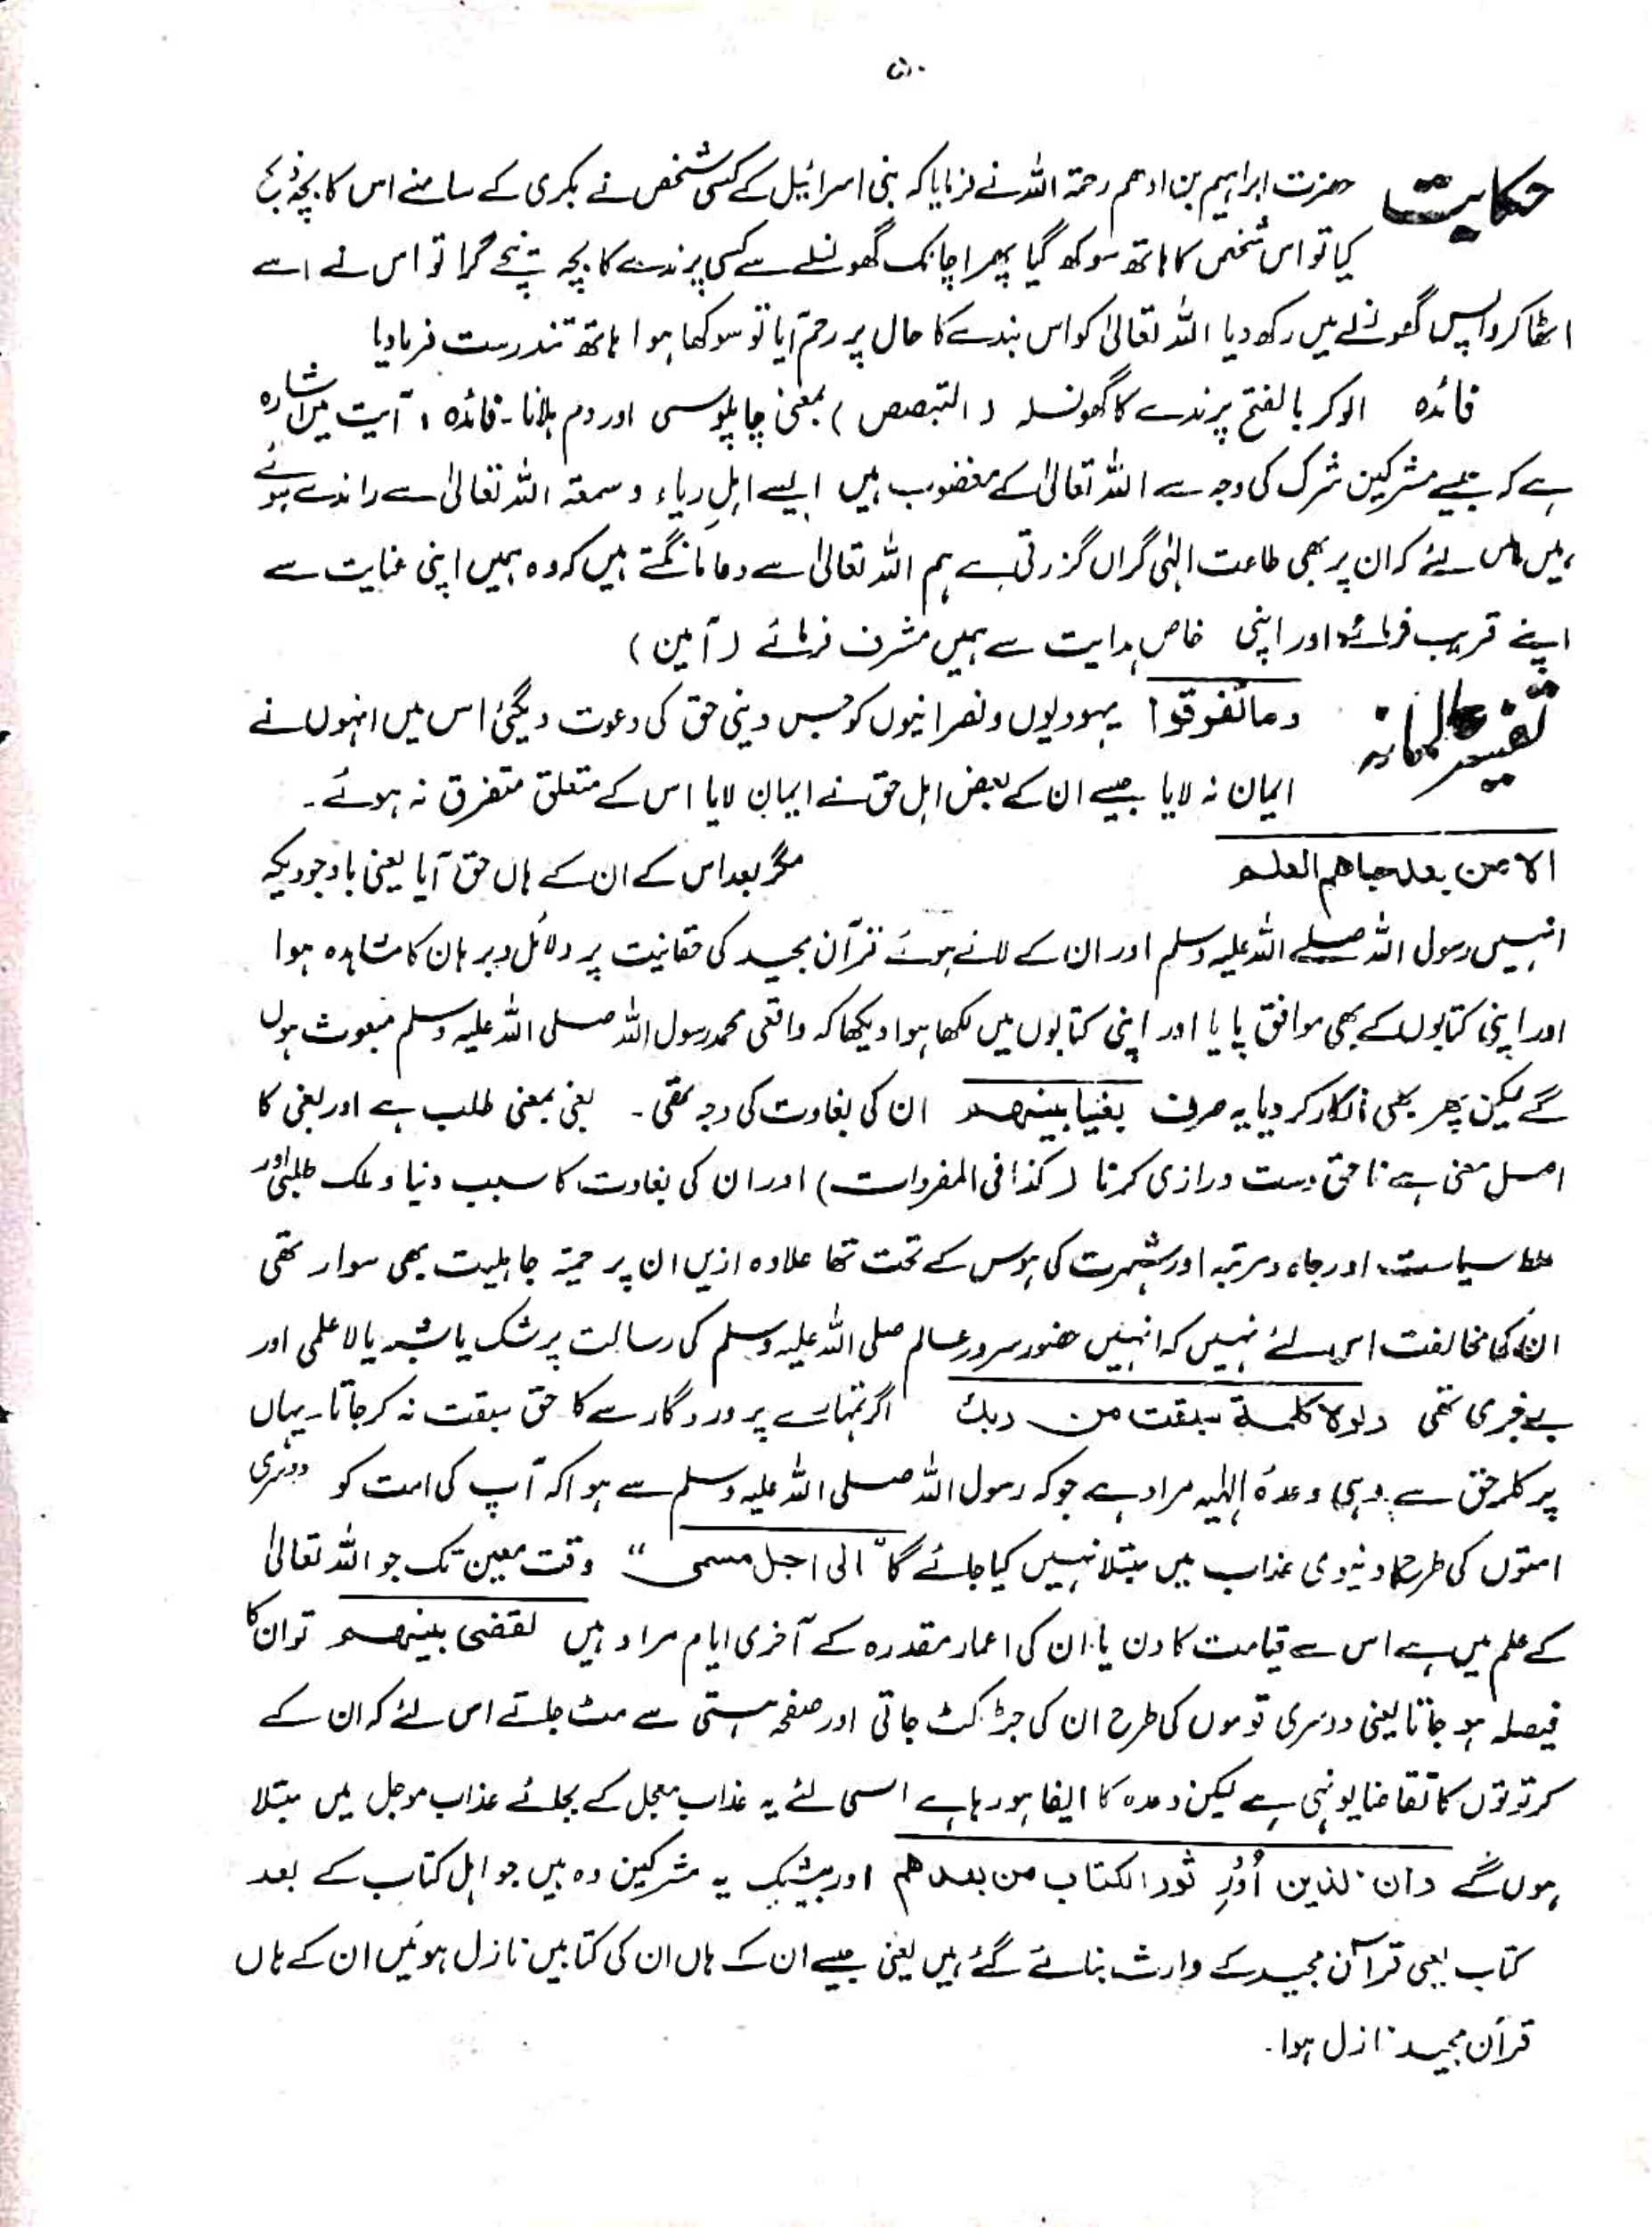 ۵۰
حکایت حضرت ابراہیم بن ادھم رحمۃ اللہ نے فرمایا کہ بنی اسرائیل کے کسی شخص نے بکری کے سامنے اس کا بچہ ذبح
کیا تو اس شخص کا ہاتھ سوکھ گیا پھر اچانک گھونسلے سے کسی پرندے کا بچہ نیچے گرا تو اس نے اسے
اٹھا کر واپس گھونسلے میں رکھ دیا اللہ تعالیٰ کو اس بندے کا حال پر رحم آیا تو سوکھا ہوا ہاتھ تندرست فرما دیا
فائدہ الوکر بالفتح پرندے کا گھونسلہ (التبصبص) بمعنی چاپلوسی اور دم ہلانا۔ فائدہ، آیت میں اشارہ
ہے کہ جیسے مشرکین شرک کی وجہ سے اللہ تعالیٰ کے مغضوب ہیں ایسے اہلِ ریاء و سمعۃ اللہ تعالیٰ سے راندے ہوئے
ہیں اس لئے کہ ان پر بھی طاعت الٰہی گراں گزرتی ہے ہم اللہ تعالیٰ سے دعا مانگتے ہیں کہ وہ ہمیں اپنی عنایت سے
اپنے قریب فرمائے اور اپنی خاص ہدایت سے ہمیں مشرف فرمائے (آمین)
تفسیر عالمانہ وما تفرقوا یہودیوں ونصرانیوں کو جس دینی حق کی دعوت دیگئی اس میں انہوں نے
ایمان نہ لایا جیسے ان کے بعض اہل حق نے ایمان لایا اس کے متعلق متفرق نہ ہوئے۔
الا من بعد جاھم العلم مگر بعد اس کے ان کے ہاں حق آیا یعنی باوجودیکہ
انہیں رسول اللہ صلے اللہ علیہ وسلم اور ان کے لانے ہوئے قرآن مجید کی حقانیت پر دلائل و برہان کا مشاہدہ ہوا
اور اپنی کتابوں کے بھی موافق پایا اور اپنی کتابوں میں لکھا ہوا دیکھا کہ واقعی محمد رسول اللہ صلی اللہ علیہ وسلم مبعوث ہوں
گے لیکن پھر بھی انکار کر دیا یہ صرف بغیا بینھم ان کی بغاوت کی وجہ تھی۔ بغی بمعنی طلب ہے اور بغی کا
اصل معنی ہے ناحق دست درازی کرنا (کذا فی المفردات) اور ان کی بغاوت کا سبب دنیا و ملک طلبی اور
سیاست اور جاہ و مرتبہ اور شہرت کی ہوس کے تحت تھا علاوہ ازیں ان پر حمیۃ جاہلیت بھی سوار تھی
ان کی مخالفت اس لئے نہیں کہ انہیں حضور سرور عالم صلی اللہ علیہ وسلم کی رسالت پر شک یا شبہ یا لاعلمی اور
بے خبری تھی ولولا کلمۃ سبقت من ربک اگر تمہارے پروردگار سے کا حق سبقت نہ کر جاتا۔ یہاں
پر کلمہ حق سے وہی وعدۂ الٰہیہ مراد ہے جو کہ رسول اللہ صلی اللہ علیہ وسلم سے ہوا کہ آپ کی امت کو دوسری
امتوں کی طرح دنیوی عذاب میں مبتلا نہیں کیا جائے گا "الی اجل مسمی" وقت معین تک جو اللہ تعالیٰ
کے علم میں ہے اس سے قیامت کا دن یا ان کی اعمار مقدرہ کے آخری ایام مراد ہیں لقضی بینھم تو ان کا
فیصلہ ہو جاتا یعنی دوسری قوموں کی طرح ان کی جڑ کٹ جاتی اور صفحہ ہستی سے مٹ جاتے اس لئے کہ ان کے
کرتوتوں کا تقاضا یونہی ہے لیکن وعدہ کا ایفا ہو رہا ہے اسی لئے یہ عذاب معجل کے بجائے عذاب موجل میں مبتلا
ہوں گے وان الذین اُوْرِ ثور الکتاب من بعدھم اور بیشک یہ مشرکین وہ ہیں جو اہل کتاب کے بعد
کتاب یعنی قرآن مجید کے وارث بنائے گئے ہیں یعنی جیسے ان کے ہاں ان کی کتابیں نازل ہوئیں ان کے ہاں
قرآن مجید نازل ہوا۔